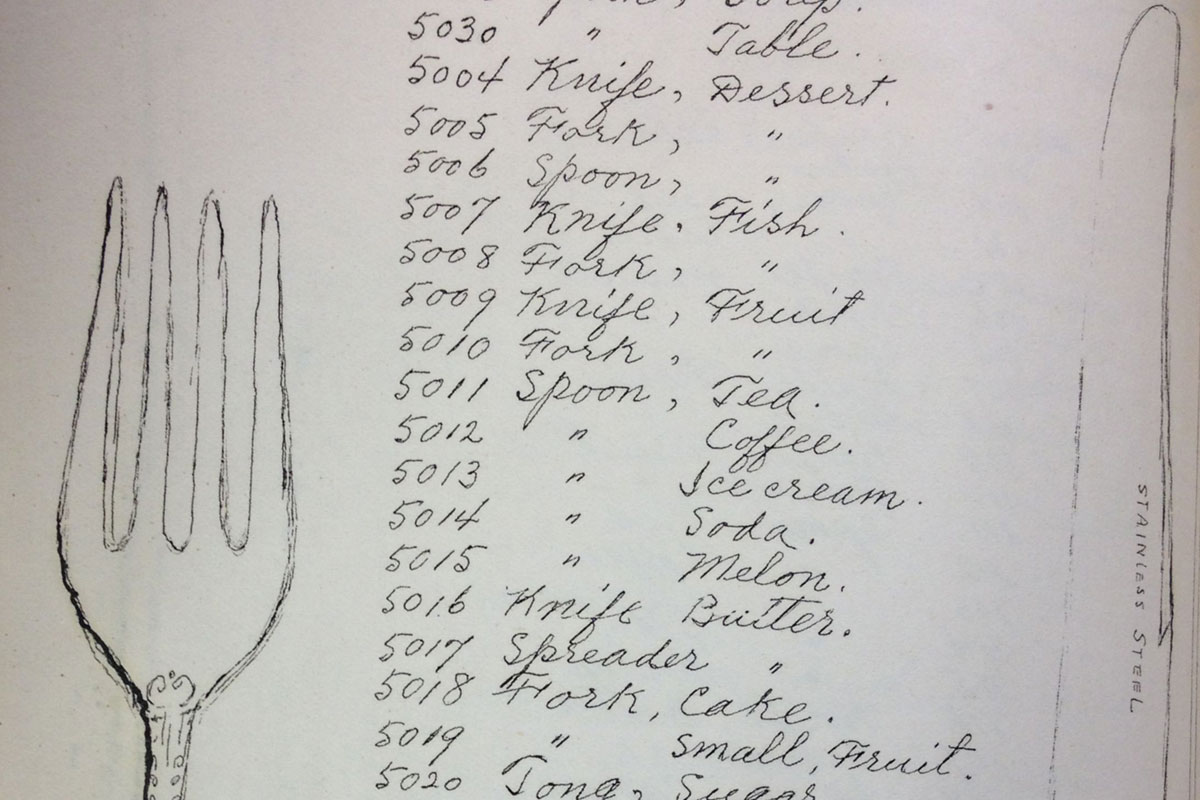 Soup.
5030 " Table.
5004 Knife, Dessert.
5005 Fork, "
5006 Spoon, "
5007 Knife, Fish.
5008 Fork, "
5009 Knife, Fruit
5010 Fork, "
5011 Spoon, Tea.
5012 " Coffee.
5013 " Ice cream.
5014 " Soda.
5015 " Melon.
5016 Knife Butter.
5017 Spreader "
5018 Fork, Cake.
5019 " Small, Fruit.
5020 Tong, Sugar
STAINLESS STEEL